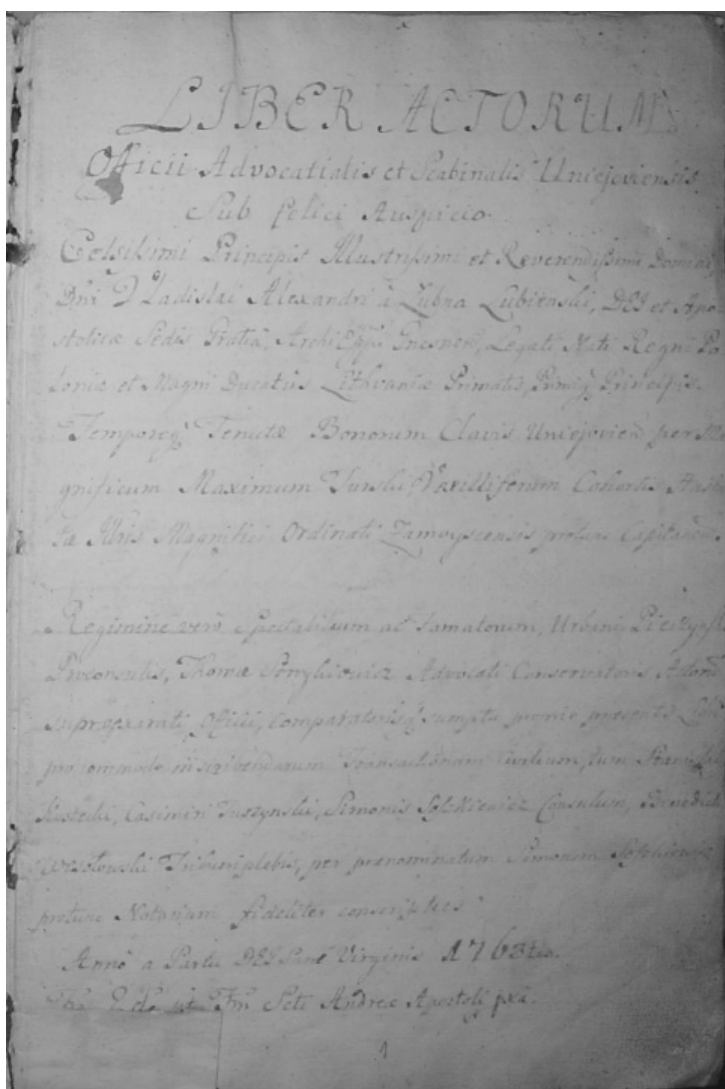 LIBER ACTORUM
Officii Advocatialis et Scabinalis Uniejoviensis
Sub felici Auspicio
Celsissimi Principis Illustrissimi et Reverendissimi Domini
Dni Vladislai Alexandri à Łubna Łubieński, DEI et Apo
stolicæ Sedis Gratiâ, Archi Gnesnen, Legati Nati Regni Po
loniæ et Magni Ducatus Lithvaniæ Primatis, Primiq Principis
Temporeq Tenutæ Bonorum Clavis Uniejovien per Ma
gnificum Maximum Turski, Vexilliferum Cohortis Hasta
tæ Magnifici Ordinati Zamoyscensis protunc Capitaneum.
Regimine vero Spectabilium ac Famatorum, Urbani
Proconsulis, Thomæ Advocati Conservatoris Actorum
Officii, Comparatorisq sumptu proprio præsentis Libri
pro commodo inscribendarum Transactionum Civilium, tum Stanislai
Casimiri Tuszynski, Simonis Consulum, Benedicti
Wesołowski Tribuni plebis, per prænominatum Simonem
protunc Notarium fideliter conscriptus
Anno a Partu DEI Virginis 1763tio.
Fr Scti Andreæ Apostoli
1